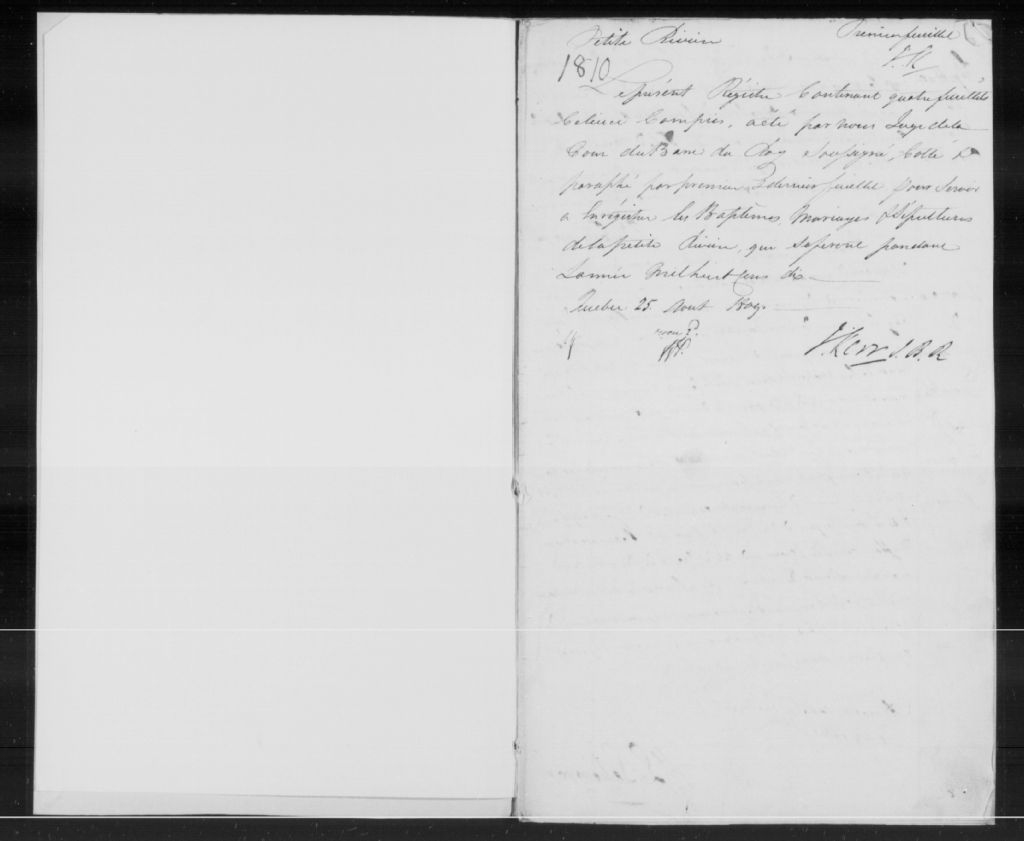 Petite Rivière
Premier feuillet
J.K
1810
Le présent Régistre Contenant quatre feuillets
Celuici Compris, a été par nous Juge de la
Cour du Banc du Roy Soussigné, Cotté &
paraphé par premier & dernier feuillet pour Servir
a Enrégistrer les Baptêmes, Mariages & Sépultures
de la petite Rivière, qui se feront pendant
L'année Mil huit Cens dix
Quebec 25 Aout
J. Kerr J.B.R